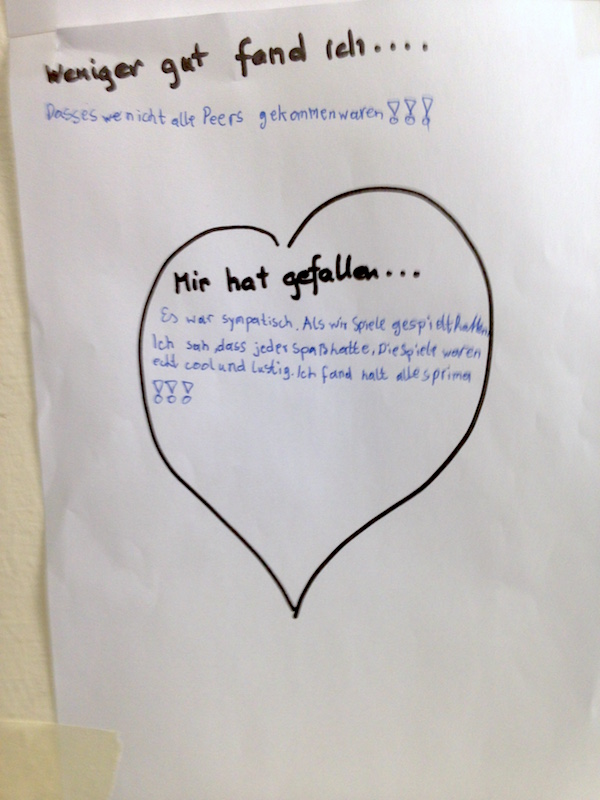 Weniger gut fand ich....
Dass es we nicht alle Peers gekommen waren!!!
Mir hat gefallen...
Es war sympatisch. Als wir Spiele gespielt hatten,
Ich sah, dass jeder Spaß hatte, Die Spiele waren
echt cool und lustig. Ich fand halt alles prima
!!!